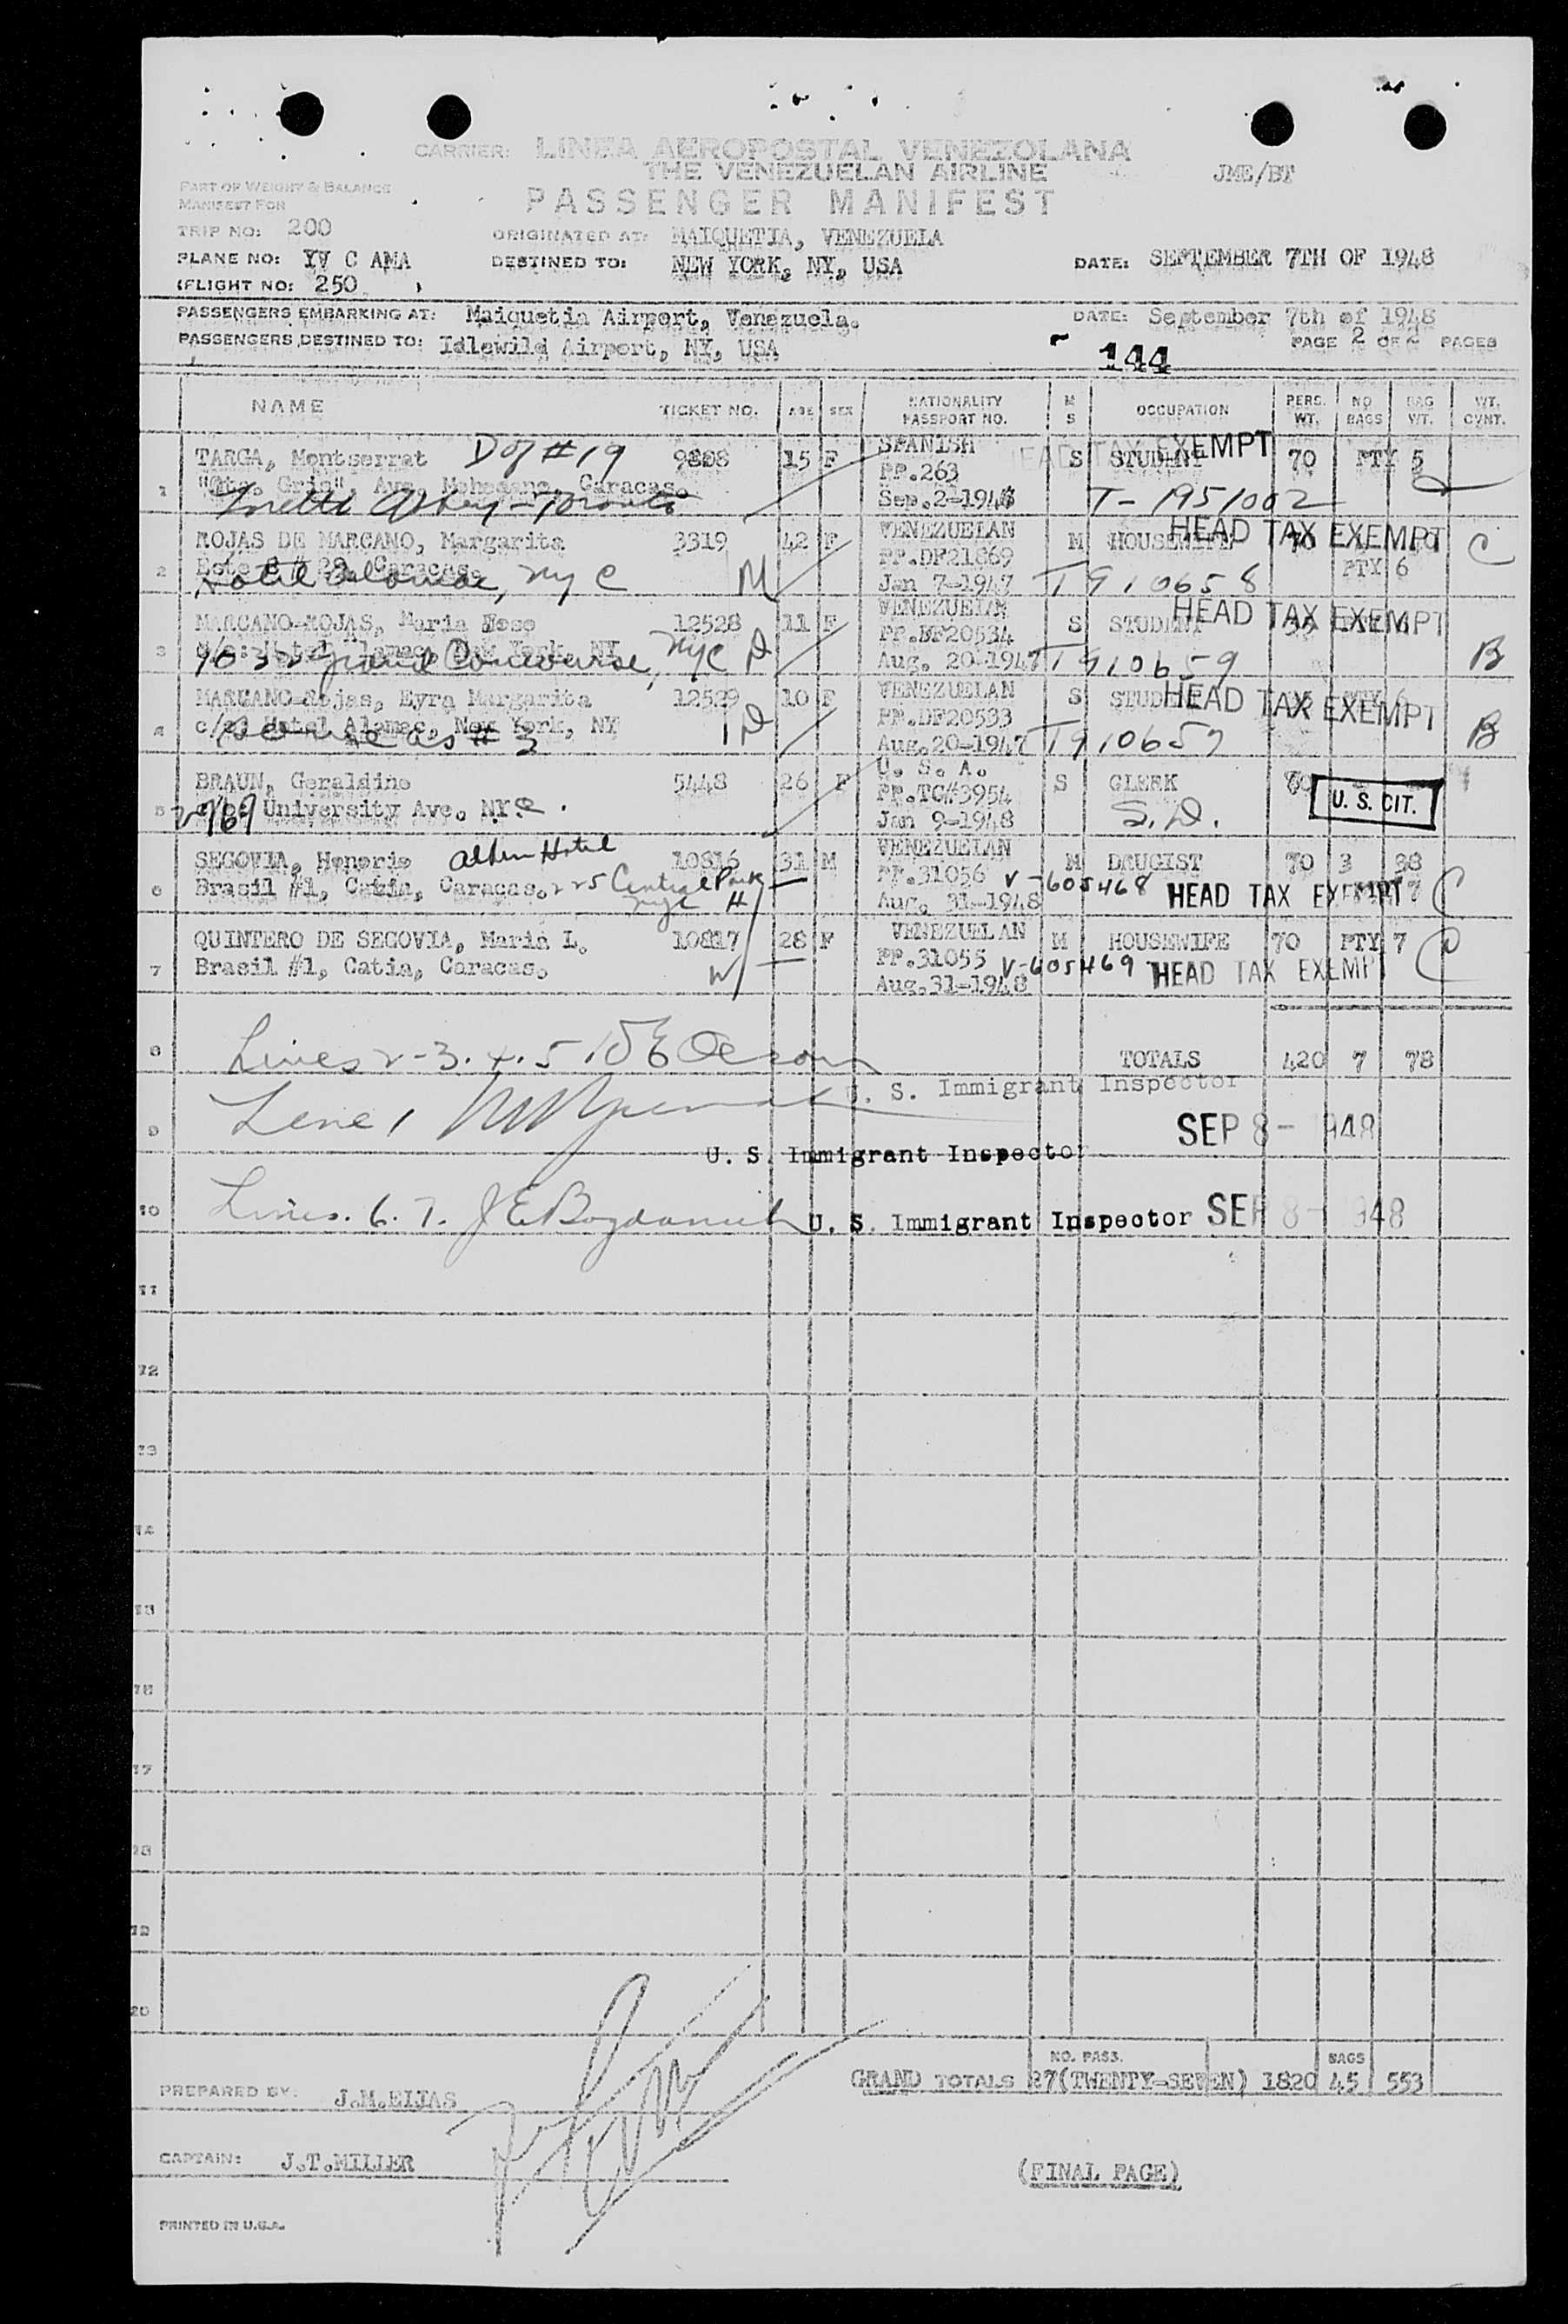 CARRIER: LINEA AEROPOSTAL VENEZOLANA
THE VENEZUELAN AIRLINE
JME/BT
PASSENGER MANIFEST
PART OF WEIGHT & BALANCE
MANIFEST FOR
TRIP NO: 200
ORIGINATED AT: MAIQUETIA, VENEZUELA
PLANE NO: YV C AMA
DESTINED TO: NEW YORK, NY, USA
DATE: SEPTEMBER 7TH OF 1948
FLIGHT NO: 250
PASSENGERS EMBARKING AT: Maiquetia Airport, Venezuela.
DATE: September 7th of 1948
PASSENGERS DESTINED TO: Idlewild Airport, NY, USA
PAGE 2 OF 2 PAGES
144
NAME TICKET NO. AGE SEX NATIONALITY PASSPORT NO. M S OCCUPATION PERS. WT. NO BAGS BAG WT. WT. CVNT.
1 TARGA, Montserrat 15 F SPANISH S STUDENT 70 PTY 5
HEAD TAX EXEMPT
PP.263
Caracas.
Toronto
T-1951002
2 ROJAS DE MARCANO, Margarita 3319 42 F VENEZUELAN M HOUSEWIFE 70
HEAD TAX EXEMPT C
Caracas. PP.DF21869 PTY 6
NYC M Jan 7-1947 T910658
3 MARCANO-ROJAS, Maria 12528 11 F VENEZUELAN S STUDENT
HEAD TAX EXEMPT
New York, NY PP.DF20534
Grand Concourse, NYC Aug. 20-1947 T910659 B
4 MARCANO-Rojas, Eyra Margarita 12529 10 F VENEZUELAN S STUDENT PTY 6
HEAD TAX EXEMPT
c/o Hotel Alamac, New York, NY PP.DF20533
Same as #3 Aug.20-1947 T910657 B
5 BRAUN, Geraldine 5448 26 F U. S. A. S CLERK
University Ave. NYC. PP.TC#3954 U. S. CIT.
Jan 9-1948 S.D.
6 SEGOVIA, Honorio 10816 31 M VENEZUELAN M DRUGIST 70 3 38
Brasil #1, Catia, Caracas. 225 Central Park PP.31056 V-605468
NYC H Aug. 31-1948 HEAD TAX EXEMPT 7 C
7 QUINTERO DE SEGOVIA, Maria L. 10817 28 F VENEZUELAN M HOUSEWIFE 70 PTY 7 C
Brasil #1, Catia, Caracas. PP.31055 V-605469 HEAD TAX EXEMPT
W Aug.31-1948
8 Lines 2-3.4.5
TOTALS 420 7 78
U. S. Immigrant Inspector
9 Line 1
SEP 8- 1948
U. S. Immigrant Inspector
10 Lines. 6. 7. U. S. Immigrant Inspector SEP 8- 1948
11
12
13
14
15
16
17
18
19
20
NO. PASS. BAGS
GRAND TOTALS 27(TWENTY-SEVEN) 1820 45 553
PREPARED BY: J.M.EIJAS
CAPTAIN: J.T.MILLER
(FINAL PAGE)
PRINTED IN U.S.A.